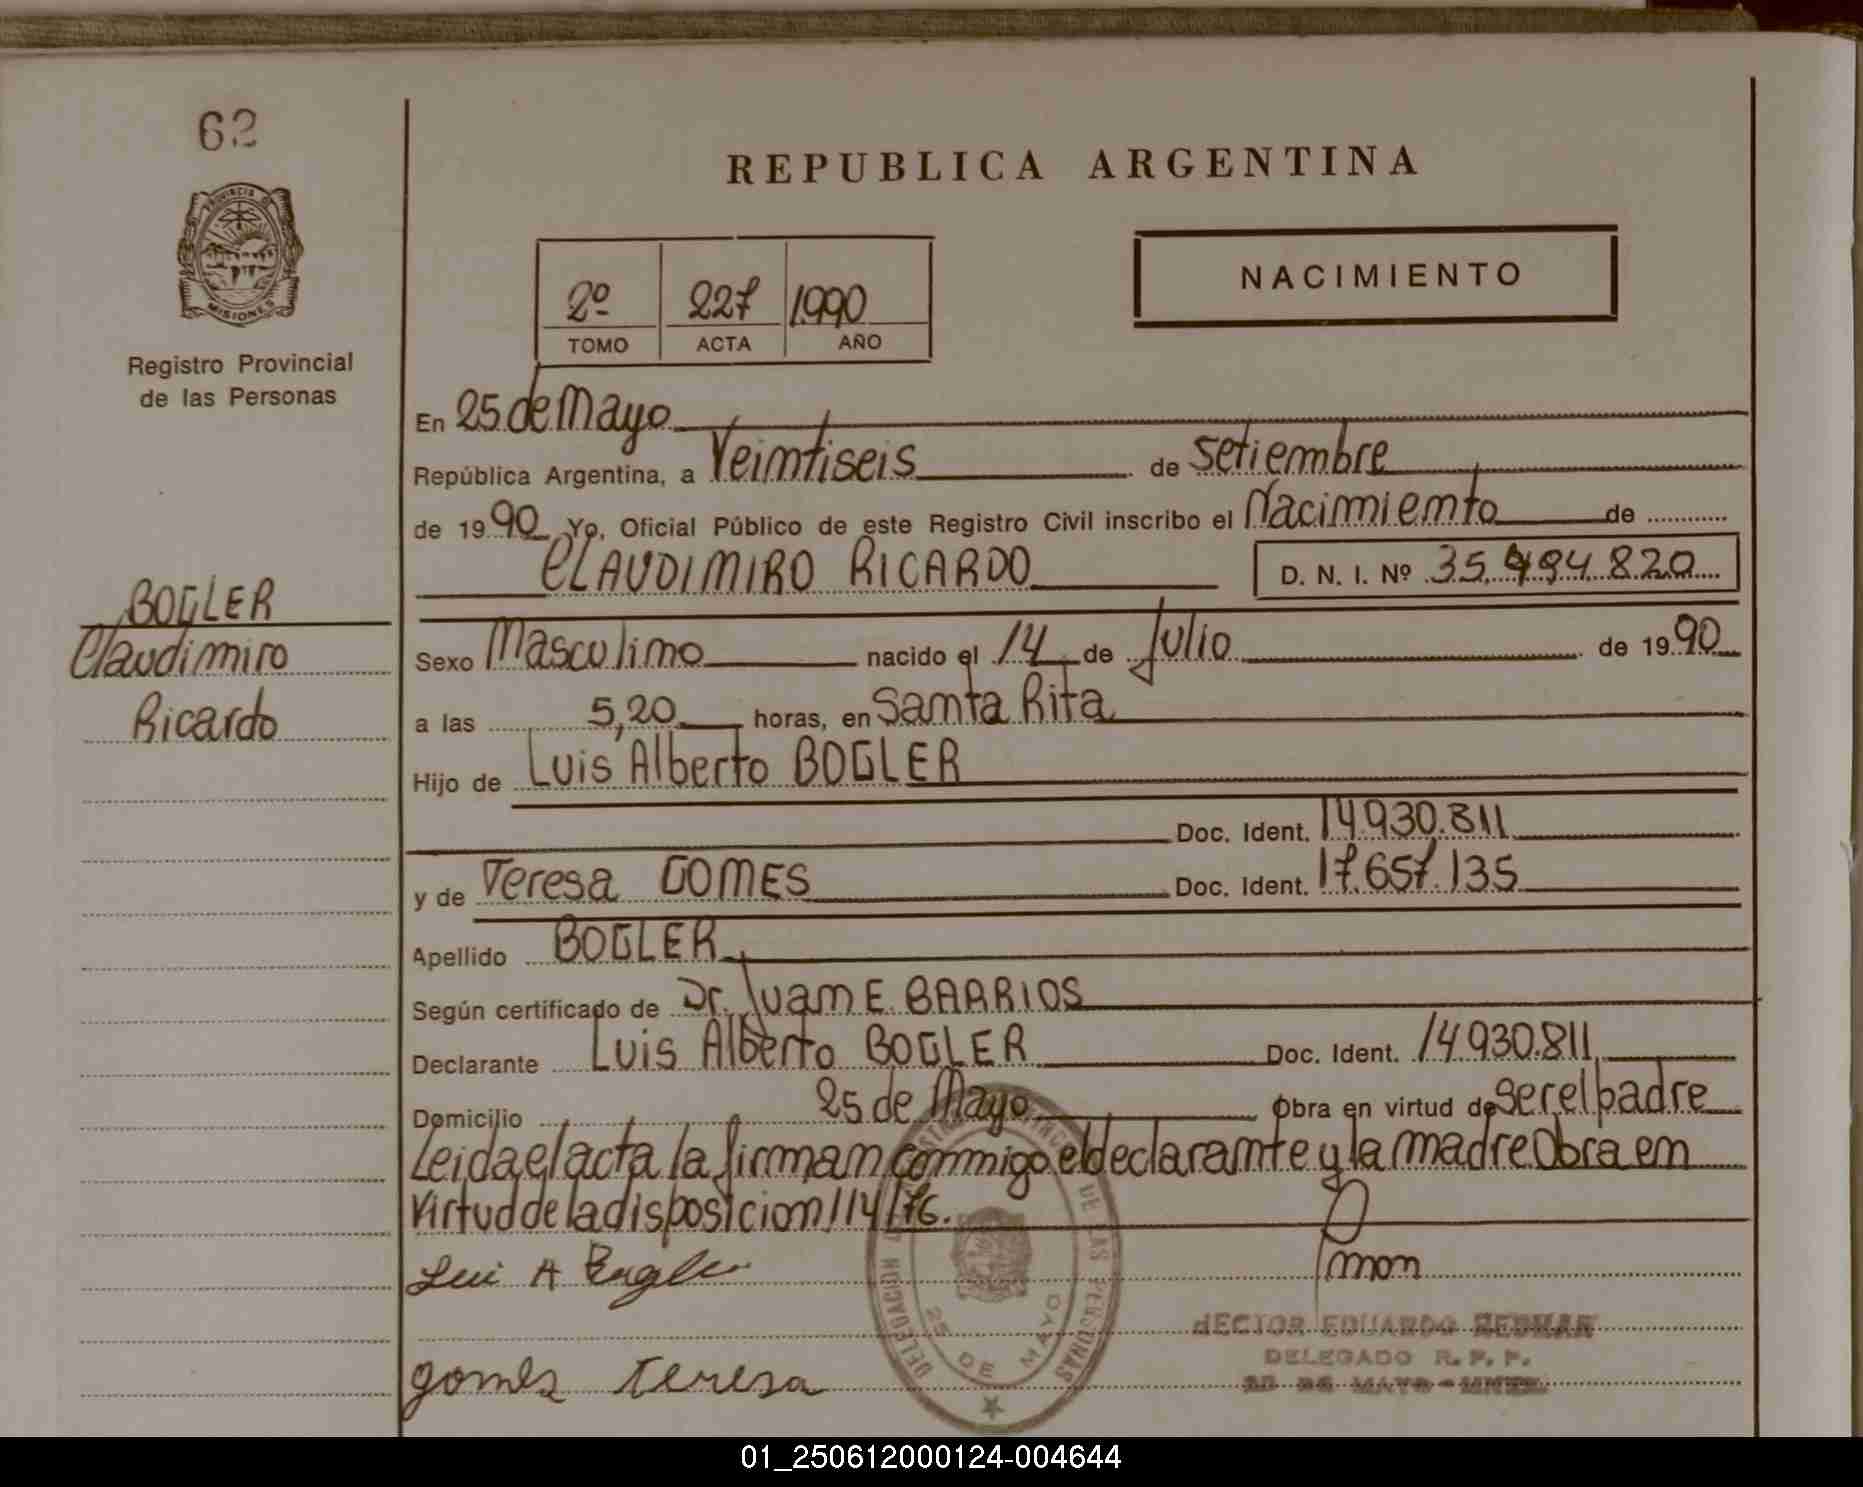 62
REPUBLICA ARGENTINA
PROVINCIA D
MISIONES
NACIMIENTO
2º 227 1990
TOMO ACTA AÑO
Registro Provincial
de las Personas
En 25 de Mayo
República Argentina, a Veintiseis de setiembre
de 1990 Yo, Oficial Público de este Registro Civil inscribo el Nacimiento de
CLAUDIMIRO RICARDO D. N. I. Nº 35.494.820
BOGLER
Claudimiro
Ricardo
Sexo Masculino nacido el 14 de Julio de 1990
a las 5,20 horas, en Santa Rita
Hijo de Luis Alberto BOGLER
Doc. Ident. 14.930.811
y de Teresa GOMES Doc. Ident. 17.657.135
Apellido BOGLER
Según certificado de Dr. Juan E. BARRIOS
Declarante Luis Alberto BOGLER Doc. Ident. 14.930.811
Domicilio 25 de Mayo Obra en virtud de ser el padre
Leida el acta la firman conmigo el declarante y la madre Obra en
virtud de la disposicion 114/76.
Lui A Bogler
DELEGACION DE LAS PERSONAS
25 DE MAYO
HECTOR EDUARDO
DELEGADO R. P. P.
25 DE MAYO - MNES.
gomes Teresa
01_250612000124-004644